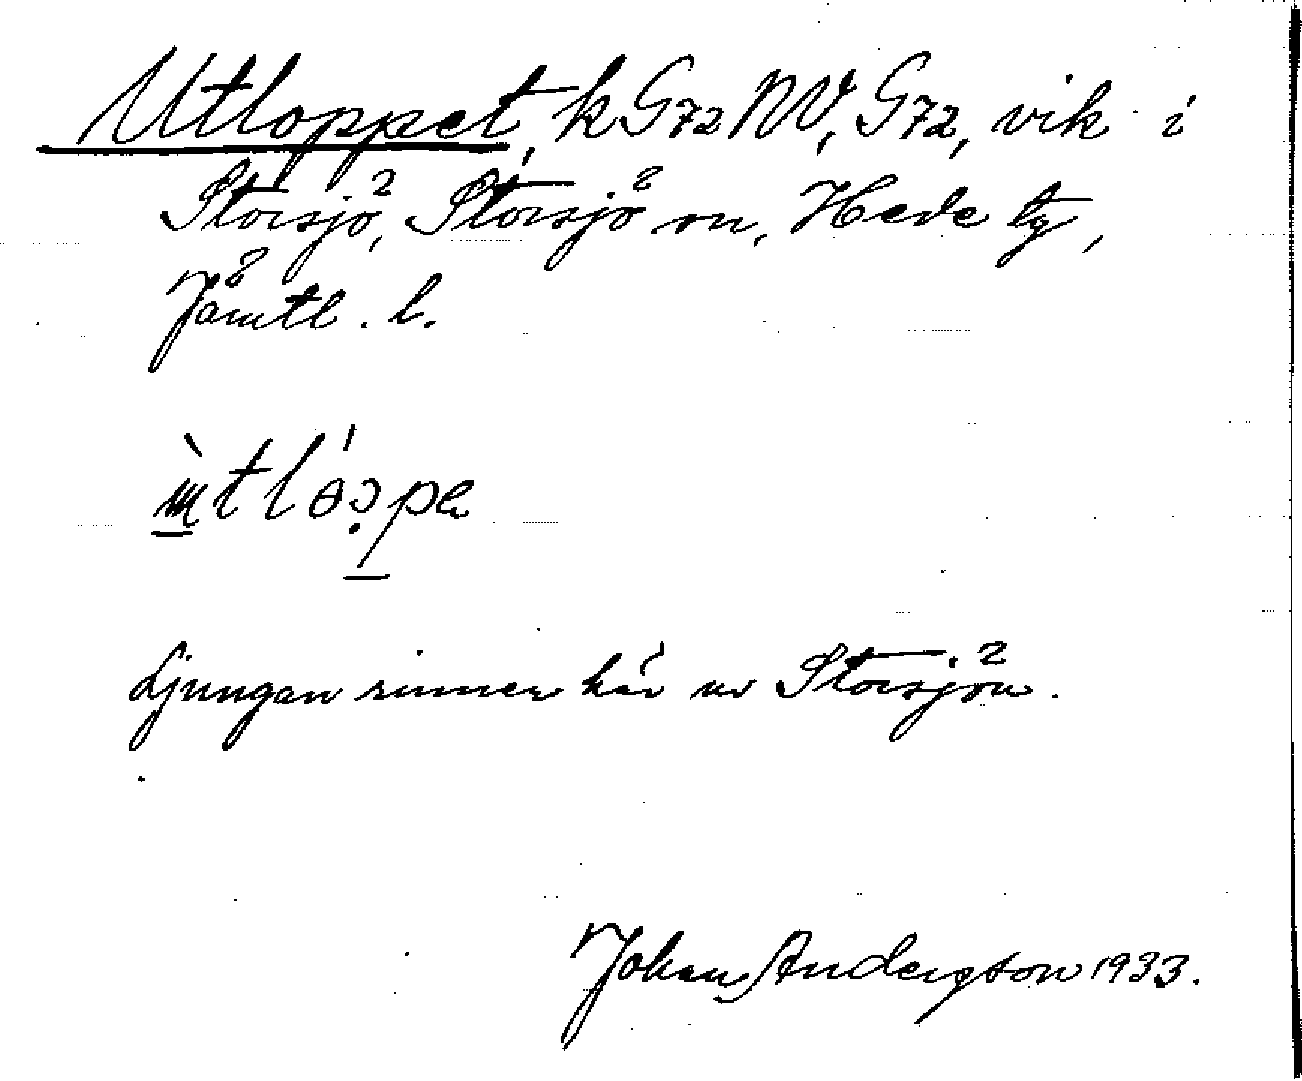 Utloppet, k G72 NV, G72, vik i
Storsjö, Storsjö sn, Hede tg,
Jämtl. l.
Ljungan rinner här ur Storsjön.
Johan Anderson 1933.